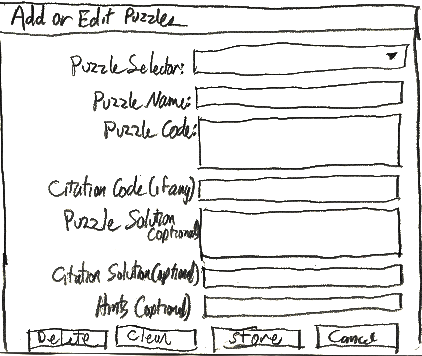 Add or Edit Puzzles
Puzzle Selector:
Puzzle Name:
Puzzle Code:
Citation Code (if any)
Puzzle Solution
(optional)
Citation Solution (optional)
Hints (optional)
Delete Clear Store Cancel